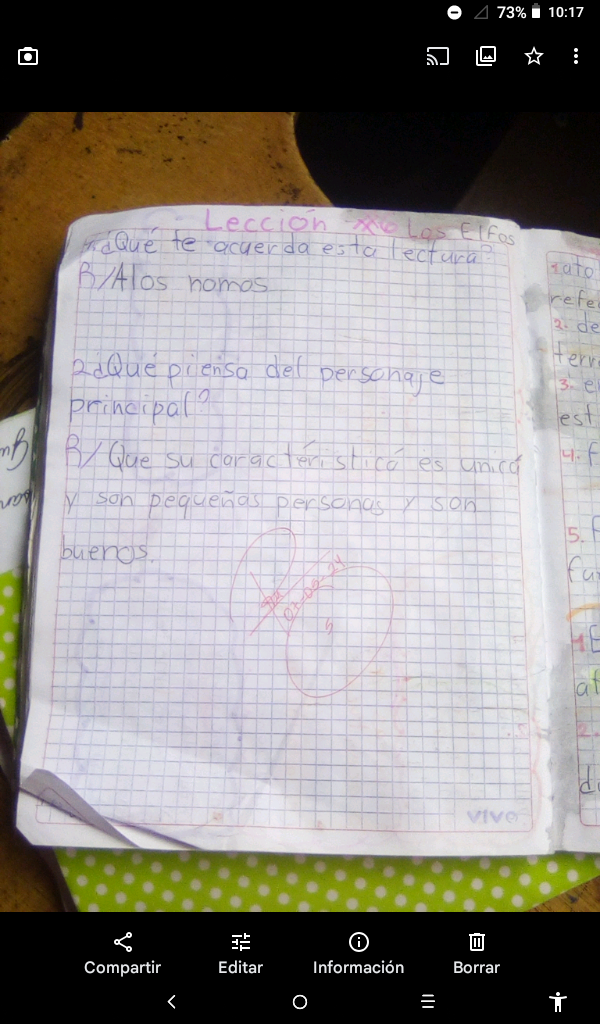 73% 10:17
Lección Los Elfos
¿Qué te acuerda esta lectura?
R/ A los nomos
2 ¿Qué piensa del personaje
principal?
R/ Que su caractéristica es unica
y son pequeñas personas y son
buenos.
vivo
refe
2. de
terr
3. e
est
4. f
5. F
fa
1 E
af
2.
di
Compartir Editar Información Borrar